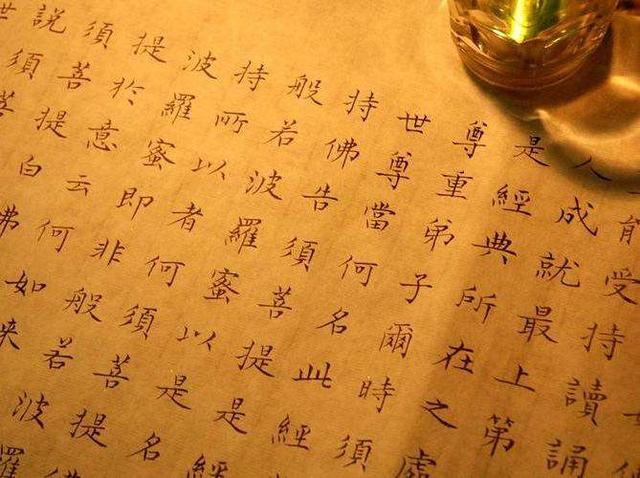 能受持讀誦
人成就最上第
是經典所在之處
尊重弟子爾時須
世尊當何名此經
持佛告須菩提是經
般若波羅蜜以是名
持所以者何須菩提
波羅蜜即非般若波羅
提於意云何如來
須菩提白佛
說須菩
世